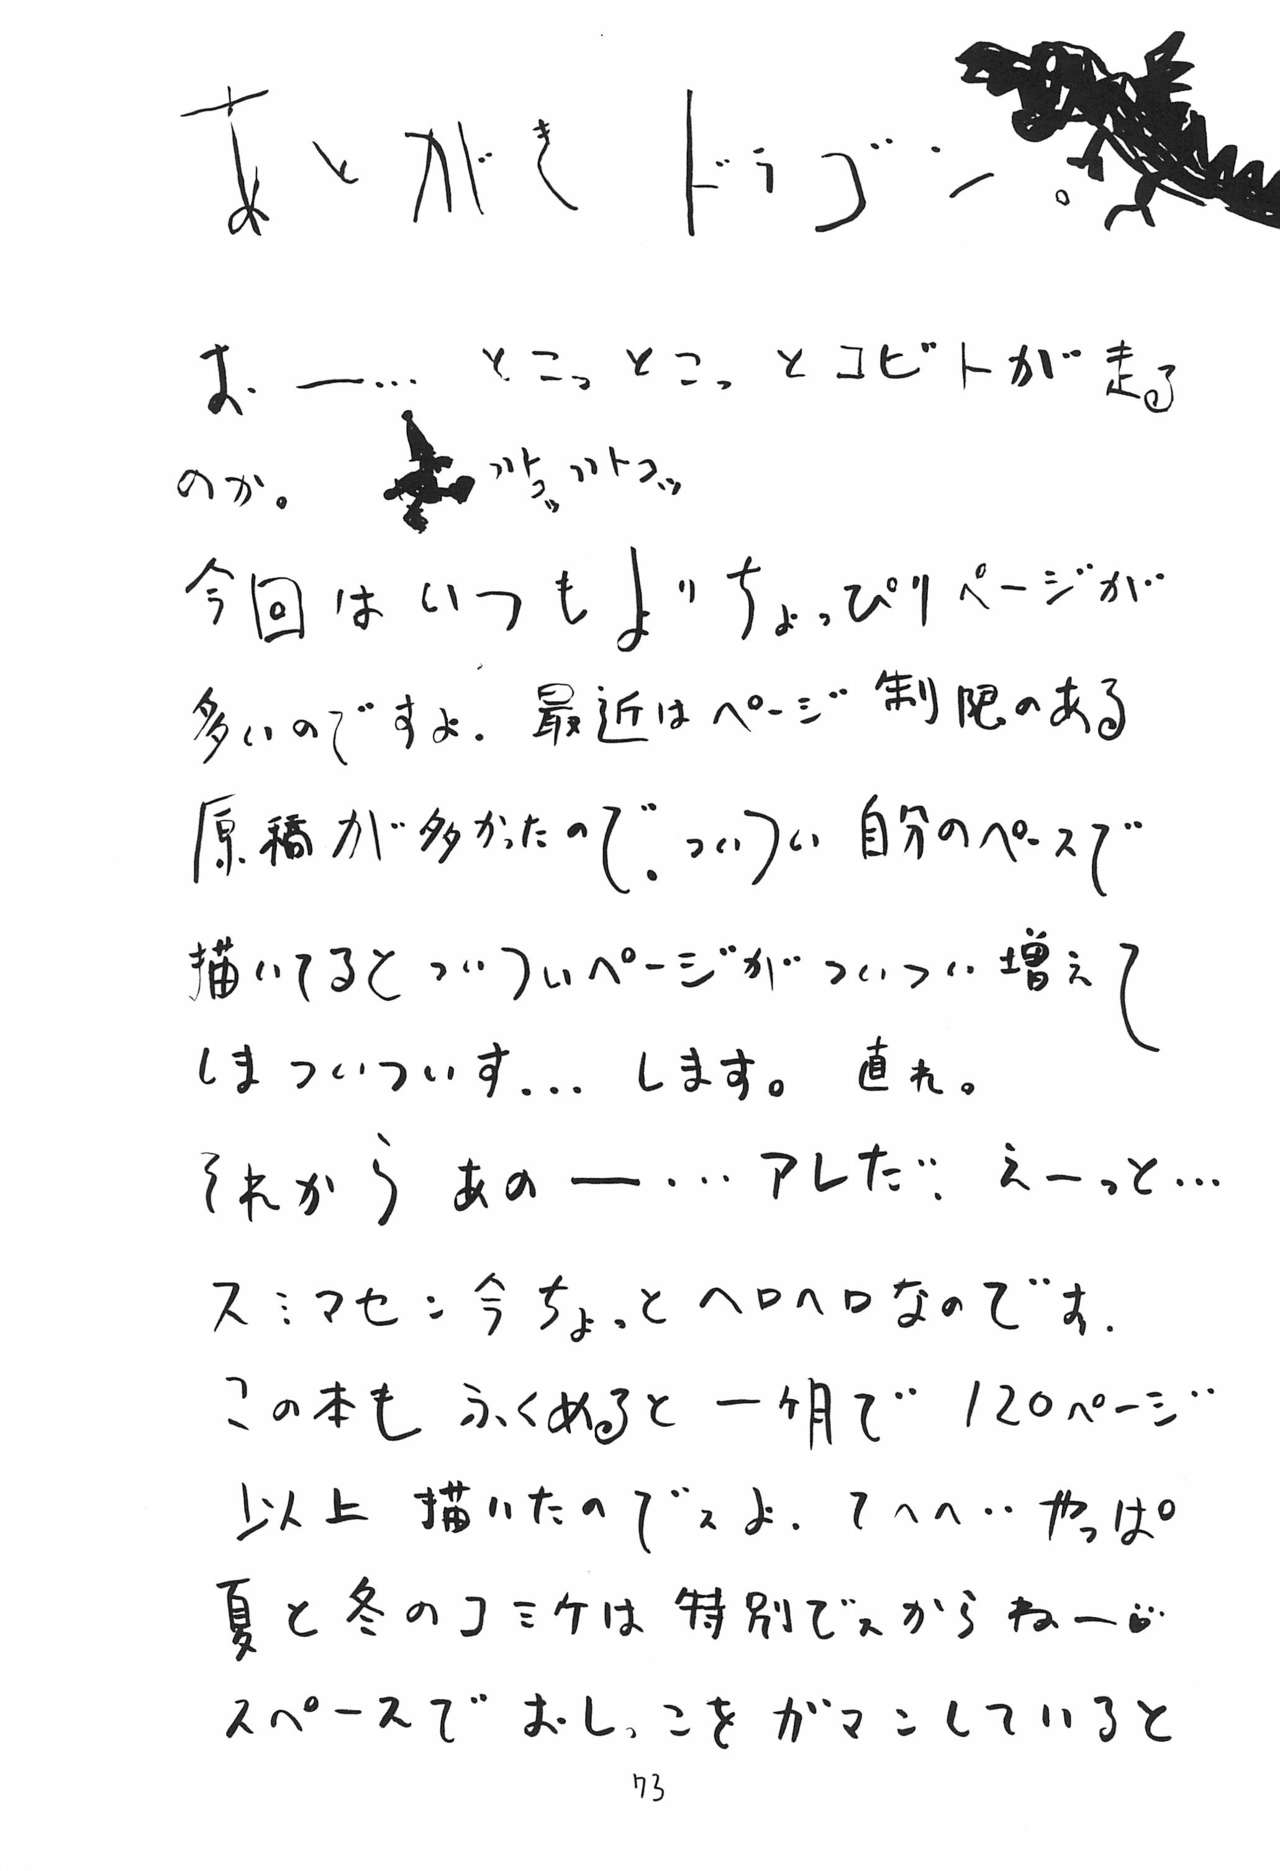 あとがきドラゴン。
おー… とこっとこっとコビトが走る
のか。 ガトゴッ ガトゴッ
今回はいつもよりちょっぴりページが
多いのですよ. 最近はページ制限のある
原稿が多かったので. ついつい自分のペースで
描いてるとついついページがついつい増えて
しまついついす... します。 直れ。
それからあのー…アレだ‥. えーっと…
スミマセン今ちょっとヘロヘロなのです.
この本もふくめると一ヶ月で120ページ
以上描いたのでスよ. てへへ‥やっぱ
夏と冬のコミケは特別でスからねー
スペースでおしっこをガマンしていると
73